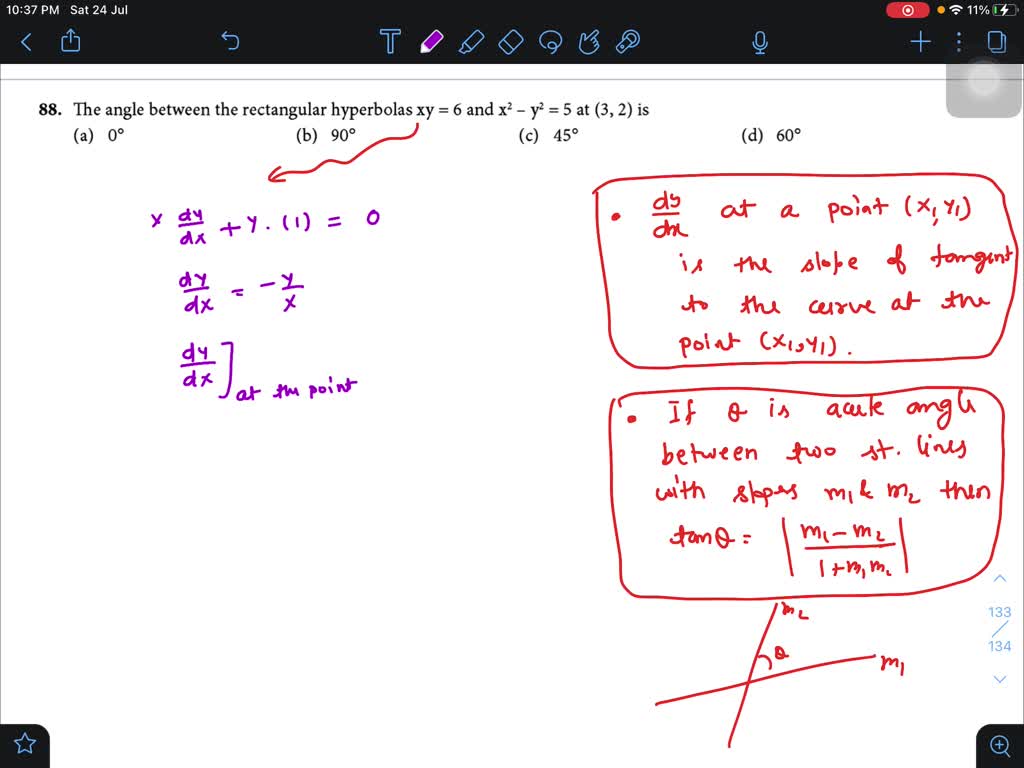 10:37 PM Sat 24 Jul
11%
88. The angle between the rectangular hyperbolas xy = 6 and x² – y² = 5 at (3, 2) is
(a) 0° (b) 90° (c) 45° (d) 60°
x dy/dx + y . (1) = 0
dy/dx = - y/x
dy/dx ] at the point
• dy/dx at a point (x1, y1)
is the slope of tangent
to the curve at the
point (x1, y1).
• If θ is acute angle
between two st. lines
with slopes m1 & m2 then
tanθ = | m1 - m2 / 1 + m1 m2 |
m2
θ
m1
133
134